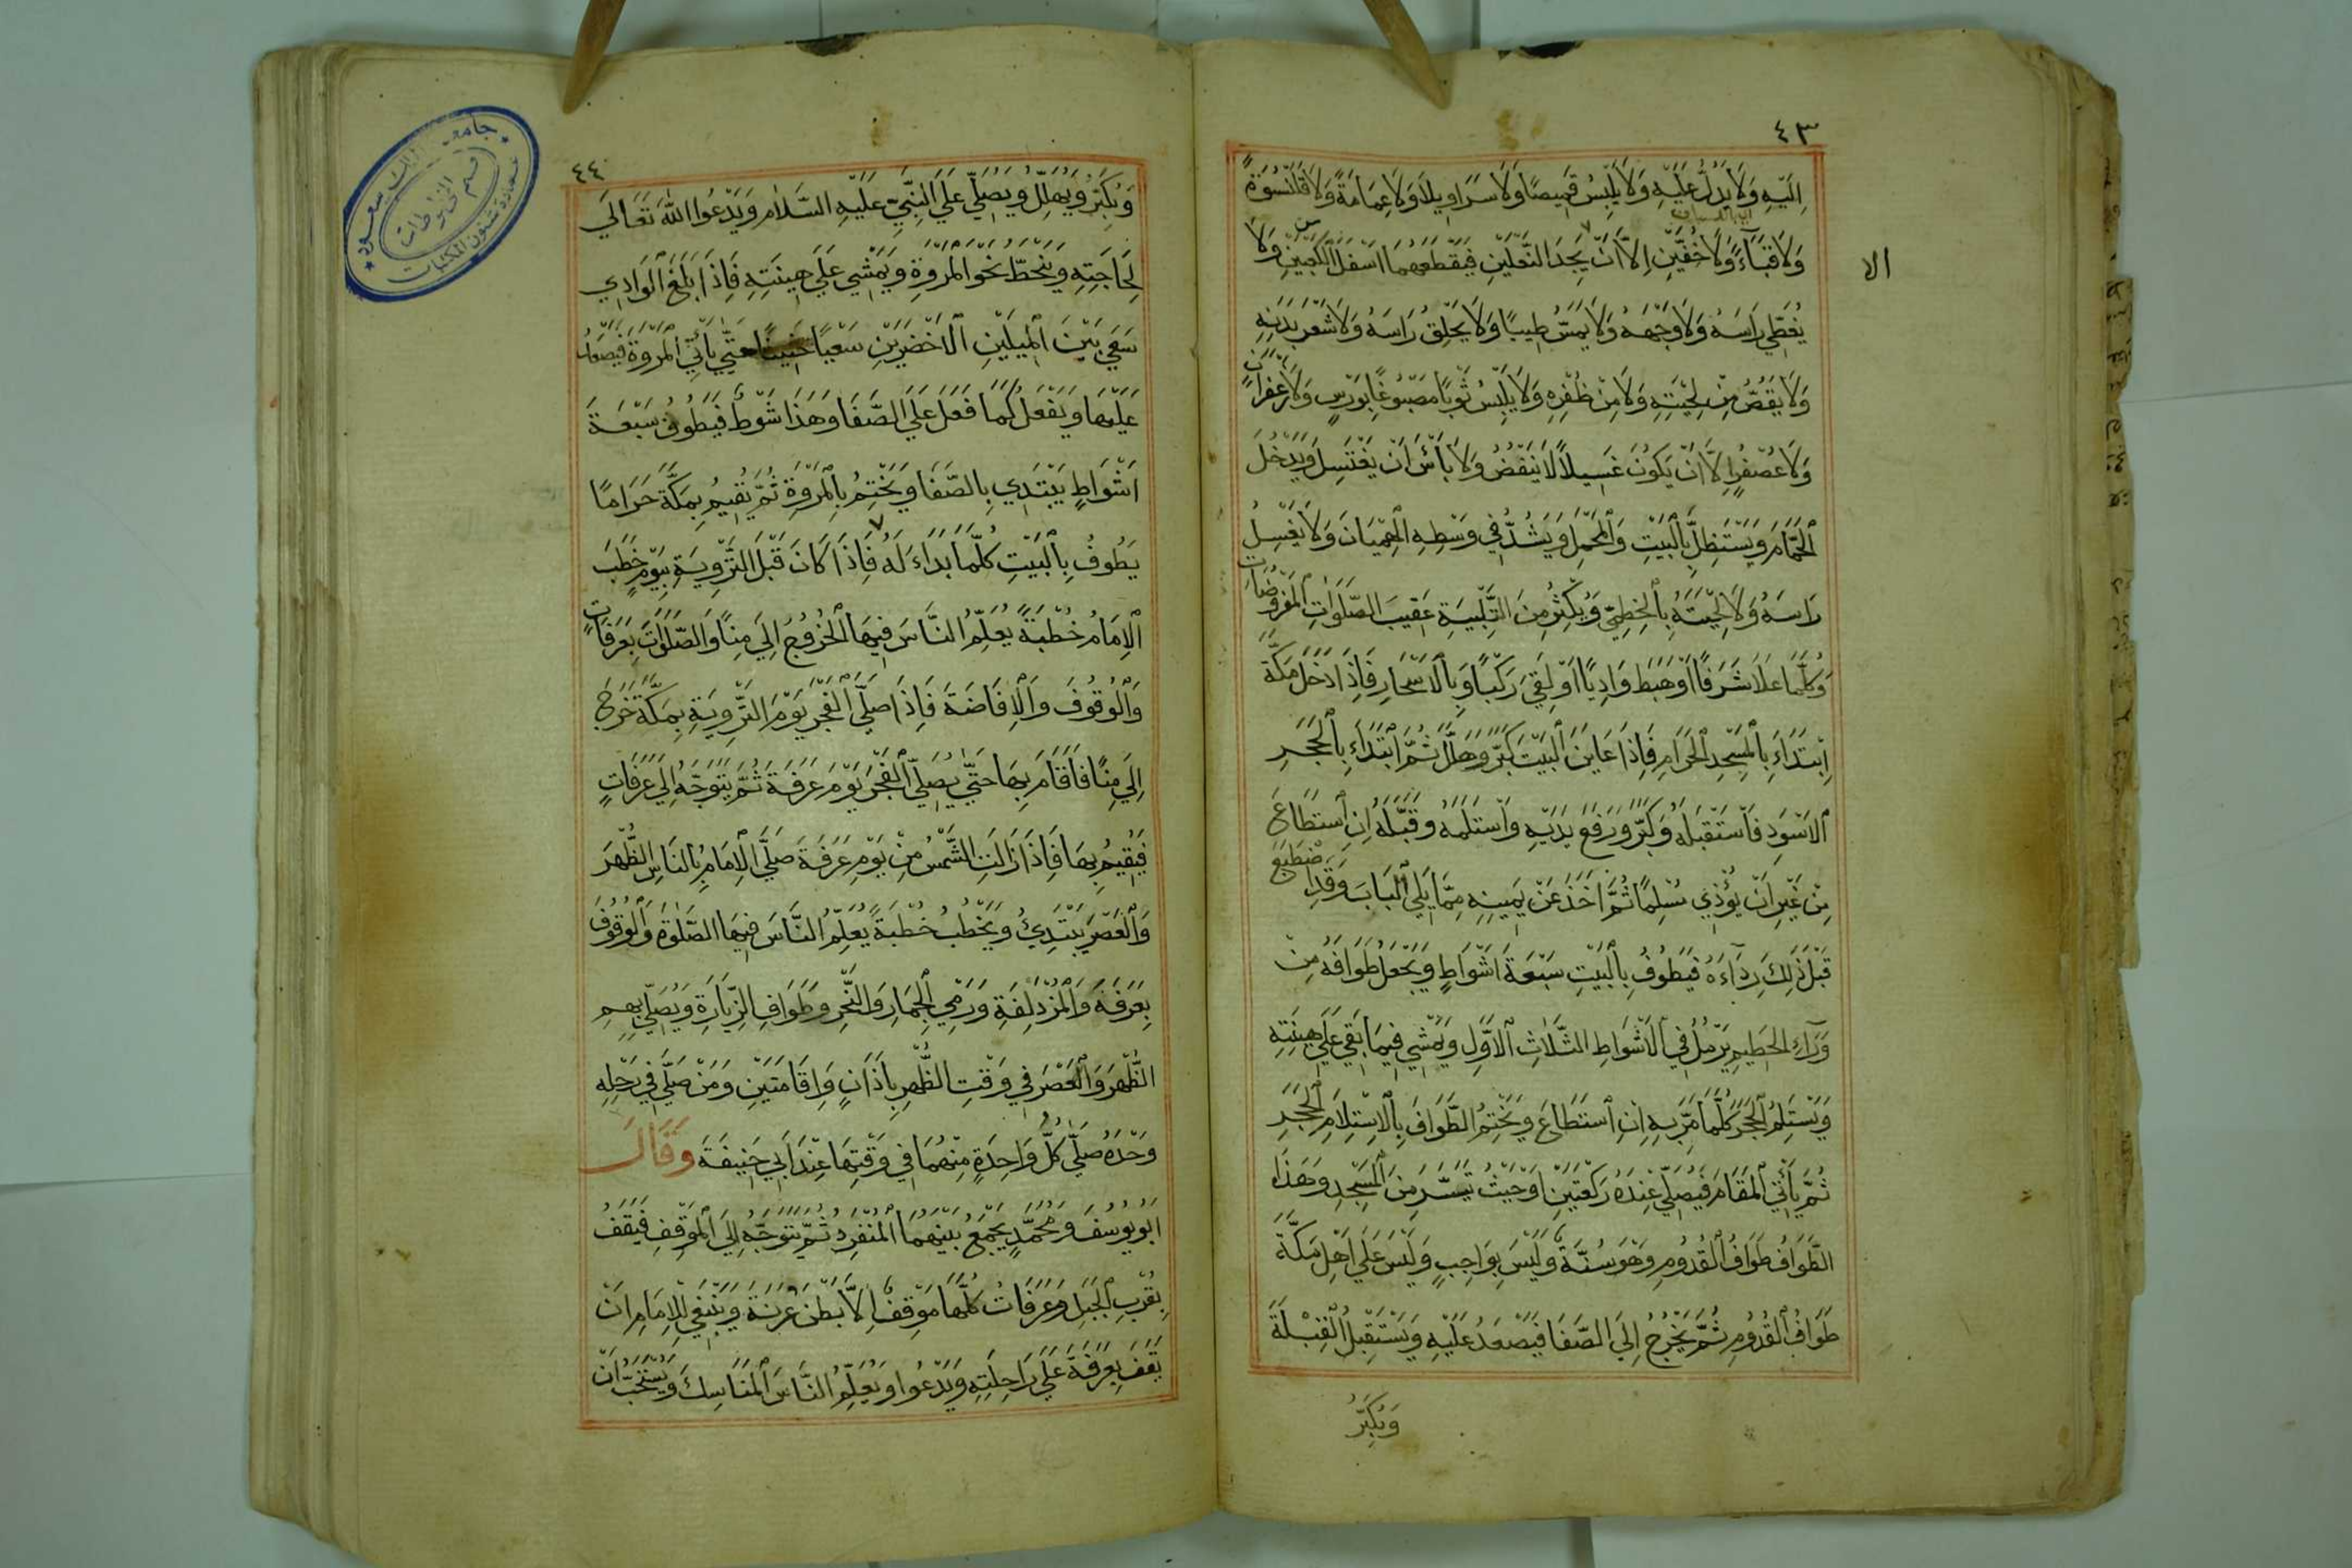 ٤٣
اِلَيْهِ وَلَا يَدُلُّ عَلَيْهِ وَلَا يَلْبِسُ قَمِيصًا وَلَا سَرَاوِيلًا وَلَا عِمَامَةً وَلَا قَلَنْسُوَةً
وَلَا قَبَآءً وَلَا خُفَّيْنِ اِلَّا اَنْ يَجِدَ النَّعْلَيْنِ فَيَقْطَعَهُمَا اَسْفَلَ الْكَعْبَيْنِ وَلَا
الا
يُغَطِّي رَاسَهُ وَلَا وَجْهَهُ وَلَا يَمَسُّ طِيبًا وَلَا يَحْلِقُ رَاسَهُ وَلَا شَعْرَ بَدَنِهِ
وَلَا يَقُصُّ مِنْ لِحْيَتِهِ وَلَا مِنْ ظُفْرِهِ وَلَا يَلْبِسُ ثَوْبًا مَصْبُوغًا بِوَرْسٍ وَلَا زَعْفَرَانٍ
وَلَا عُصْفُرٍ اِلَّا اَنْ يَكُونَ غَسِيلًا لَا يَنْفُضُ وَلَا بَأْسَ اَنْ يَغْتَسِلَ وَيَدْخُلَ
الْحَمَّامَ وَيَسْتَظِلَّ بِالْبَيْتِ وَالْمَحْمِلِ وَيَشُدُّ فِي وَسْطِهِ الْهِمْيَانَ وَلَا يَغْسِلُ
رَاسَهُ وَلَا لِحْيَتَهُ بِالْخِطْمِيِّ وَيُكْثِرُ مِنَ التَّلْبِيَةِ عَقِيبَ الصَّلَوَاتِ الْمَفْرُوضَاتِ
وَكُلَّمَا عَلَا شَرَفًا اَوْ هَبَطَ وَادِيًا اَوْ لَقِيَ رَكْبًا وَبِالْاَسْحَارِ فَاِذَا دَخَلَ مَكَّةَ
اِبْتَدَاَءَ بِالْمَسْجِدِ الْحَرَامِ فَاِذَا عَايَنَ الْبَيْتَ كَبَّرَ وَهَلَّلَ ثُمَّ ابْتَدَاَءَ بِالْحَجَرِ
الْاَسْوَدِ فَاسْتَقْبَلَهُ وَكَبَّرَ وَرَفَعَ يَدَيْهِ وَاسْتَلَمَهُ وَقَبَّلَهُ اِنِ اسْتَطَاعَ
مِنْ غَيْرِ اَنْ يُؤْذِي مُسْلِمًا ثُمَّ اَخَذَ عَنْ يَمِينِهِ مِمَّا يَلِي الْبَابَ وَقَدِ اضْطَبَعَ
قَبْلَ ذٰلِكَ رِدَآءَهُ فَيَطُوفُ بِالْبَيْتِ سَبْعَةَ اَشْوَاطٍ وَيَجْعَلُ طَوَافَهُ مِنْ
وَرَآءِ الْحَطِيمِ يَرْمُلُ فِي الْاَشْوَاطِ الثَّلَاثِ الْاَوَّلِ وَيَمْشِي فِيمَا بَقِيَ عَلَى هِينَتِهِ
وَيَسْتَلِمُ الْحَجَرَ كُلَّمَا مَرَّ بِهِ اِنِ اسْتَطَاعَ وَيَخْتِمُ الطَّوَافَ بِالْاِسْتِلَامِ الْحَجَرِ
ثُمَّ يَأْتِي الْمَقَامَ فَيُصَلِّي عِنْدَهُ رَكْعَتَيْنِ اَوْ حَيْثُ تَيَسَّرَ مِنَ الْمَسْجِدِ وَهَذَا
الطَّوَافُ طَوَافُ الْقُدُومِ وَهُوَ سُنَّةٌ وَلَيْسَ بِوَاجِبٍ وَلَيْسَ عَلَى اَهْلِ مَكَّةَ
طَوَافُ الْقُدُومِ ثُمَّ يَخْرُجُ اِلَى الصَّفَا فَيَصْعَدُ عَلَيْهِ وَيَسْتَقْبِلُ الْقِبْلَةَ
وَيُكَبِّرُ
٤٤
وَيُكَبِّرُ وَيُهَلِّلُ وَيُصَلِّي عَلَى النَّبِيِّ عَلَيْهِ السَّلَامُ وَيَدْعُوا اللهَ تَعَالَى
لِحَاجَتِهِ وَيَنْحَطُّ نَحْوَ الْمَرْوَةِ وَيَمْشِي عَلَى هِينَتِهِ فَاِذَا بَلَغَ الْوَادِي
سَعَى بَيْنَ الْمِيلَيْنِ الْاَخْضَرَيْنِ سَعْيًا حَتَّى يَأْتِيَ الْمَرْوَةَ فَيَصْعَدُ
عَلَيْهَا وَيَفْعَلُ كَمَا فَعَلَ عَلَى الصَّفَا وَهَذَا شَوْطٌ فَيَطُوفُ سَبْعَةَ
اَشْوَاطٍ يَبْتَدِي بِالصَّفَا وَيَخْتِمُ بِالْمَرْوَةِ ثُمَّ يُقِيمُ بِمَكَّةَ حَرَامًا
يَطُوفُ بِالْبَيْتِ كُلَّمَا بَدَاءَ لَهُ فَاِذَا كَانَ قَبْلَ التَّرْوِيَةِ بِيَوْمٍ خَطَبَ
الْاِمَامُ خُطْبَةً يُعَلِّمُ النَّاسَ فِيهَا الْخُرُوجَ اِلَى مِنًا وَالصَّلَوٰتَ بِعَرَفَاتٍ
وَالْوُقُوفَ وَالْاِفَاضَةَ فَاِذَا صَلَّى الْفَجْرَ يَوْمَ التَّرْوِيَةِ بِمَكَّةَ خَرَجَ
اِلَى مِنًا فَاَقَامَ بِهَا حَتَّى يُصَلِّيَ الْفَجْرَ يَوْمَ عَرَفَةَ ثُمَّ يَتَوَجَّهُ اِلَى عَرَفَاتٍ
فَيُقِيمُ بِهَا فَاِذَا زَالَتِ الشَّمْسُ مِنْ يَوْمِ عَرَفَةَ صَلَّى الْاِمَامُ بِالنَّاسِ الظُّهْرَ
وَالْعَصْرَ يَبْتَدِئُ وَيَخْطُبُ خُطْبَةً يُعَلِّمُ النَّاسَ فِيهَا الصَّلٰوةَ وَالْوُقُوفَ
بِعَرَفَةَ وَالْمُزْدَلِفَةِ وَرَمْيِ الْجِمَارِ وَالنَّحْرِ وَطَوَافِ الزِّيَارَةِ وَيُصَلِّي بِهِمِ
الظُّهْرَ وَالْعَصْرَ فِي وَقْتِ الظُّهْرِ بِاَذَانٍ وَاِقَامَتَيْنِ وَمَنْ صَلَّى فِي رَحْلِهِ
وَحْدَهُ صَلَّى كُلَّ وَاحِدَةٍ مِنْهُمَا فِي وَقْتِهَا عِنْدَ اَبِي حَنِيفَةَ وَقَالَ
اَبُو يُوسُفَ وَمُحَمَّدٍ يَجْمَعُ بَيْنَهُمَا الْمُنْفَرِدُ ثُمَّ يَتَوَجَّهُ اِلَى الْمَوْقِفِ فَيَقِفُ
بِقُرْبِ الْجَبَلِ وَعَرَفَاتُ كُلُّهَا مَوْقِفٌ اِلَّا بَطْنَ عُرَنَةَ وَيَنْبَغِي لِلْاِمَامِ اَنْ
يَقِفَ بِعَرَفَةَ عَلَى رَاحِلَتِهِ وَيَدْعُوا وَيُعَلِّمُ النَّاسَ الْمَنَاسِكَ وَيُسْتَحَبُّ اَنْ
جامعة الملك سعود
قسم المخطوطات
عمادة شئون المكتبات